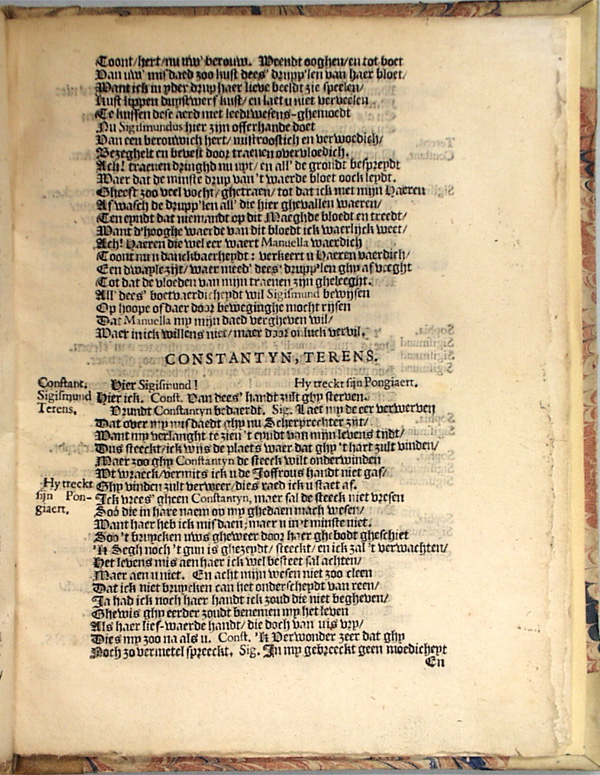 Toont/hert/nu uw' berouw. Weendt ooghen/en tot boet
Van uw' misdaed zoo kust dees' drupp'len van haer bloet/
Want ick in yder drup haer lieve beeldt zie speelen/
Kust lippen duystwerf kust/en laet u niet verveelen
Te kussen dese aerd met leedtwesens-ghemoedt
Nu Sigismundus hier zijn offerhande doet
Van een berouwich hert/mistroostich en verwoedich/
Bezeghelt en bevest door traenen overvloedich.
Ach! traenen dringhd nu uyt/en all' de grondt bespreydt
Waer dat de minste drup van 't waerde bloet oock leydt.
Gheeft zoo veel vocht/ghetraen/tot dat ick met mijn Haeren
Afwasch de drupp'len all' die hier ghevallen waeren/
Ten eyndt dat niemandt op dit Maeghde bloedt en treedt/
Want d'hooghe waerde van dit bloedt ick waerlijck weet/
Ach! Haeren die wel eer waert Manuella waerdich
Toont nu danckbaerheydt: verkeert u Haeren vaerdich/
Een dwayle zijt/waer meed' dees' drupp'len ghy af vaeght
Tot dat de vloeden van mijn traenen zijn gheleegijt.
All' dees' boetvaerdicheydt wil Sigismund bewysen
Op hoope of daer door beweginghe mocht rysen
Dat Manuella my mijn daed vergheven wil/
Waer in ick willens niet/maer door onluck verviel.
CONSTANTYN, TERENS.
Constant. Hier Sigismund! Hy treckt sijn Pongiaert.
Sigismund Hier ick. Const. Van dees' handt zult ghy sterven.
Terens. Vrundt Constantyn bedaerdt. Sig. Laet my de eer verwerven
Dat over my misdaedt ghy nu Scherprechter zijt/
Want my verlanght te zien 't eyndt van mijn levens tijdt/
Dus steeckt/ick wijs de plaets waer dat ghy 't hart zult vinden/
Maer zoo ghy Constantyn de steeck wilt onderwinden
Wt wraeck/vermits ick u de Joffrous handt niet gaf/
Hy treckt sijn Pongiaert. Ghy vinden zult verweer/dies raed ick u staet af.
Ick vrees' gheen Constantyn, maer sal de steeck niet vresen
Soo die in hare naem op my ghedaen mach wesen/
Want haer heb ick misdaen; maer u in 't minste niet.
Soo 't bruycken uws gheweer door haer ghebodt gheschiet
'k Segh noch 't gun is ghezeydt/steeckt/en ick zal 't verwachten/
Het levens mis aen haer ick wel besteet sal achten/
Maer aen u niet. En acht mijn wesen niet zoo cleen
Dat ick niet bruycken can het onderscheydt van reen/
Ja had ick noch haer handt ick zoud die niet begheven/
Ghewis ghy eerder zoudt benemen my het leven
Als haer lief-waerde handt/die doch van uis vry/
Dies my zoo na als u. Const. 'k Verwonder zeer dat ghy
Noch zo vermetel spreeckt. Sig. In my gebreeckt geen moedicheyt
En